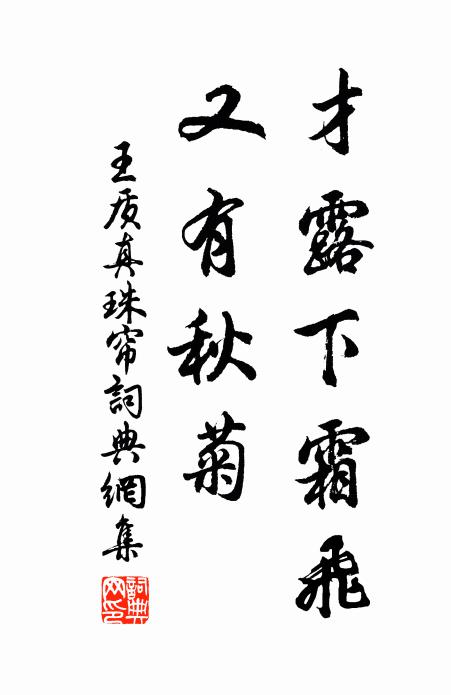 才露下霜飛
又有秋菊
王质真珠帘詞典網集
詞典网印